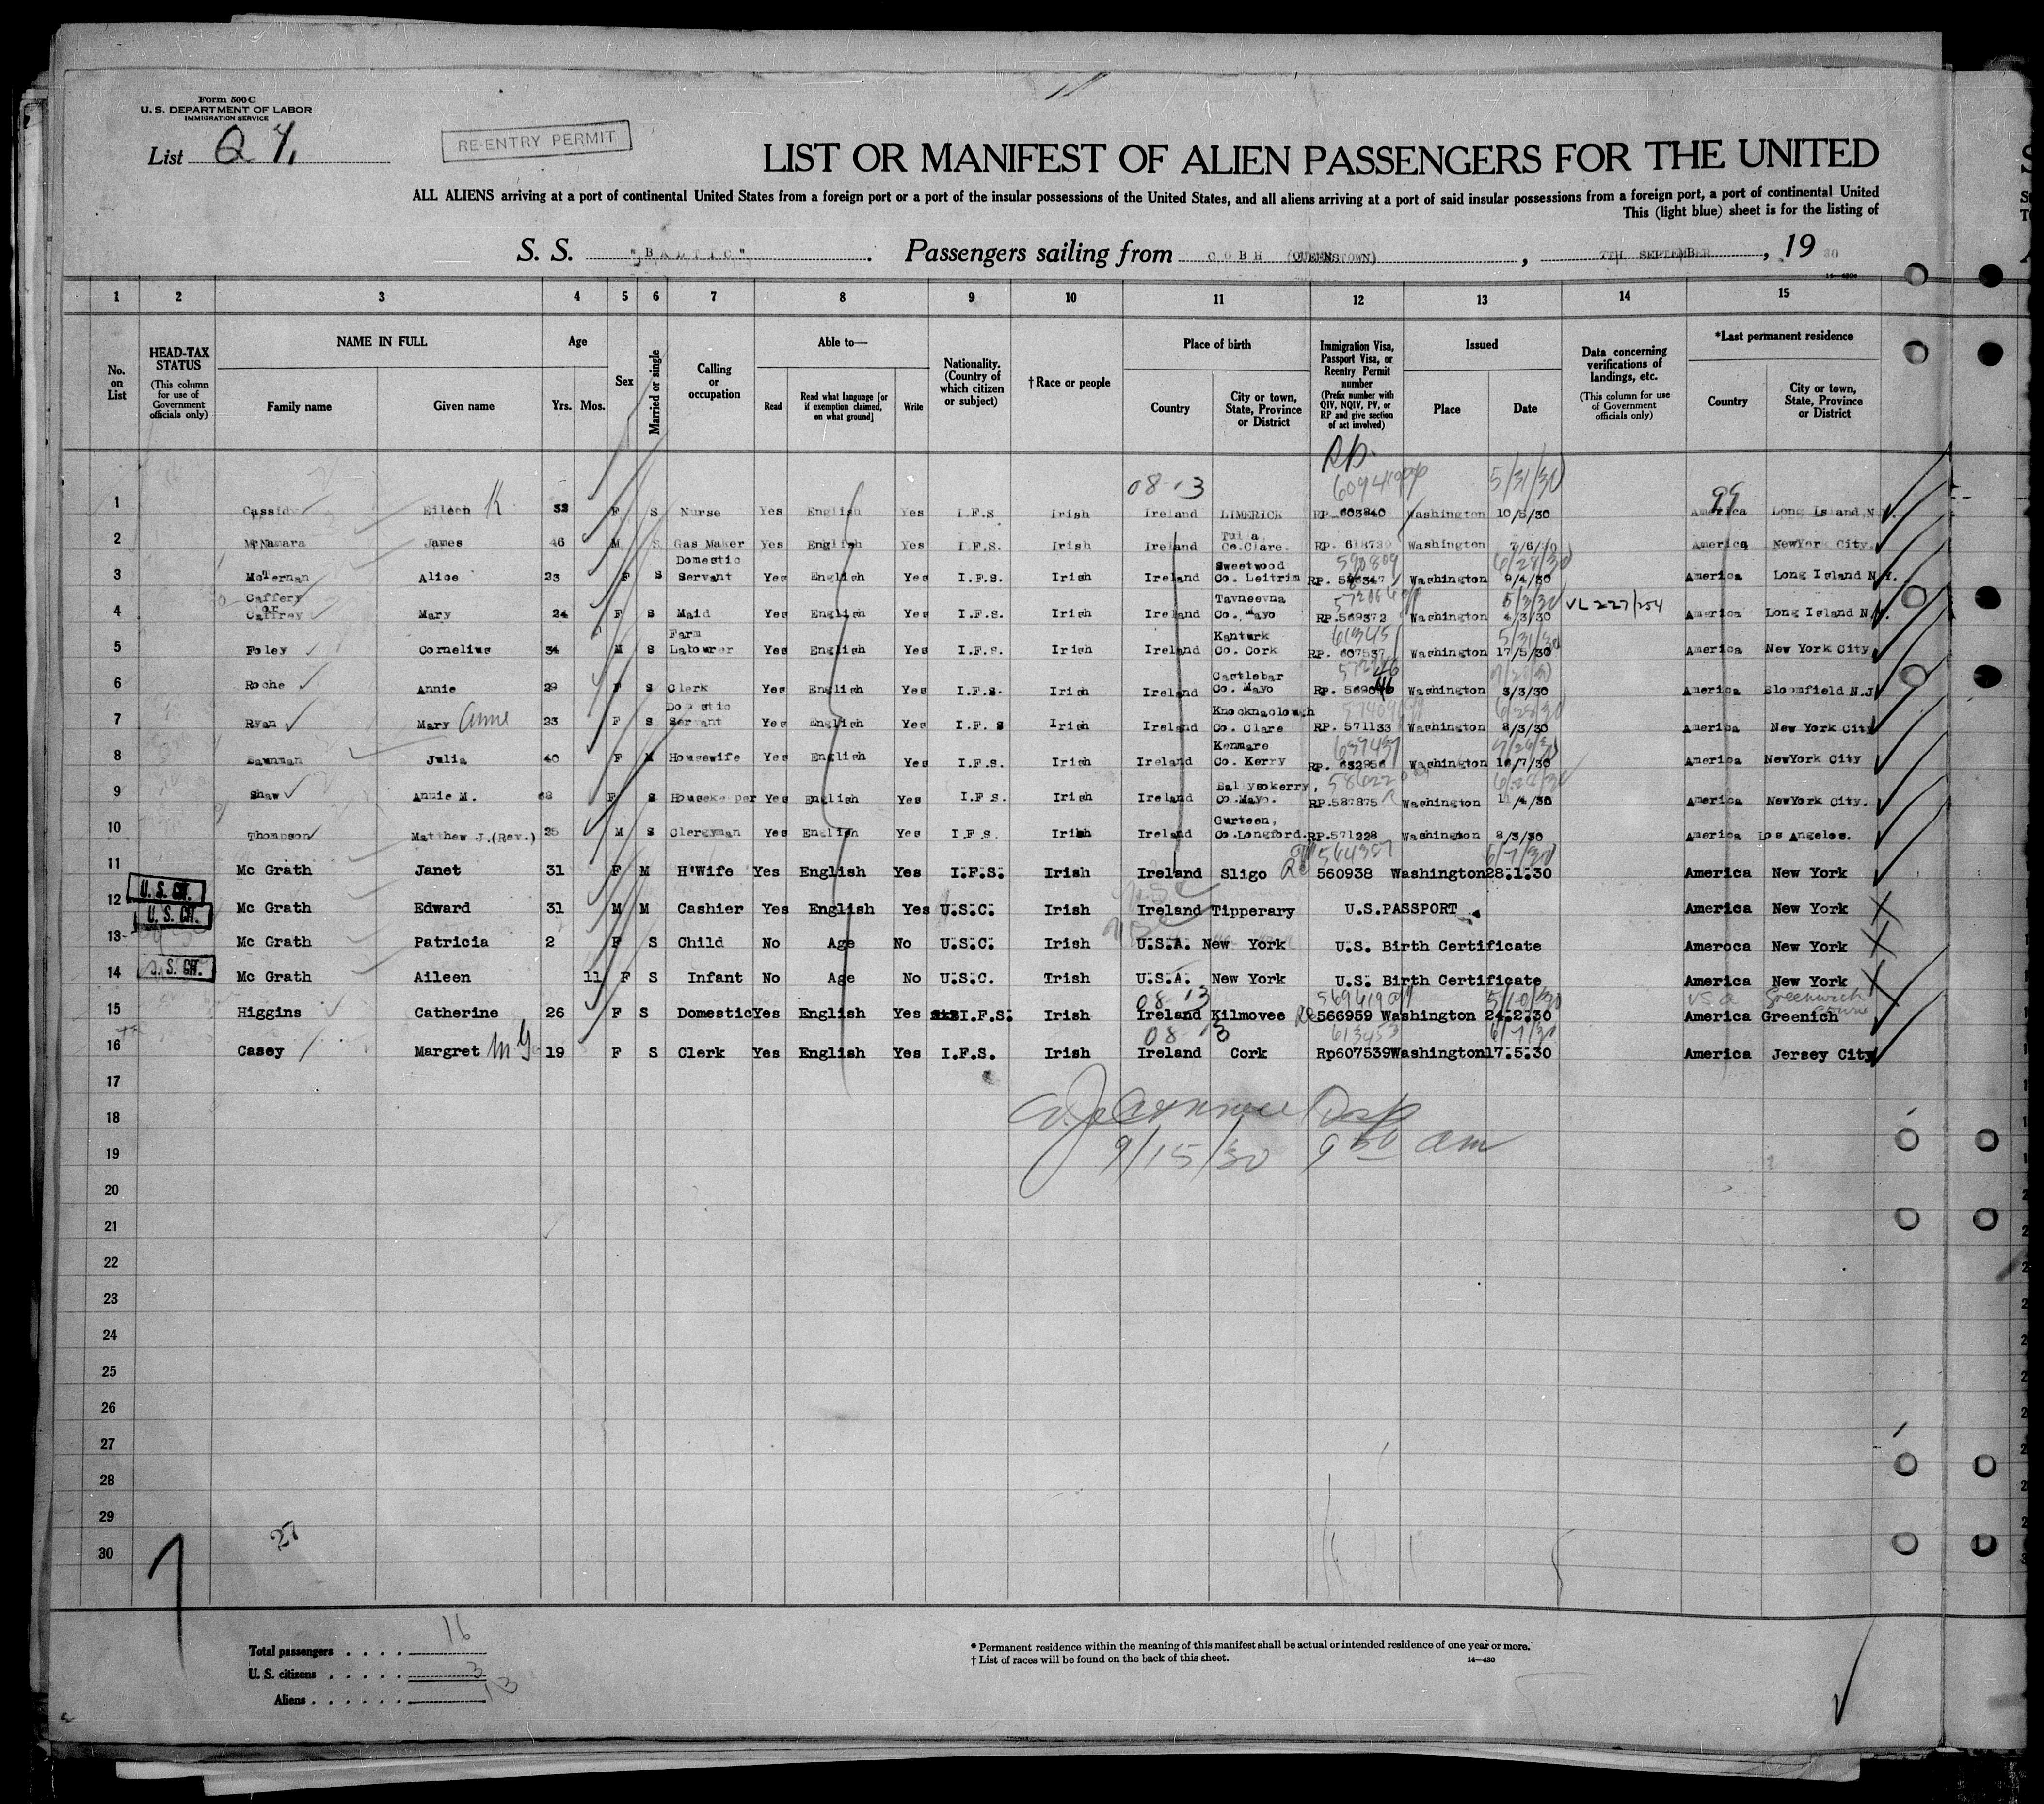 Form 500 C
U. S. DEPARTMENT OF LABOR
IMMIGRATION SERVICE
List
RE-ENTRY PERMIT
LIST OR MANIFEST OF ALIEN PASSENGERS FOR THE UNITED
ALL ALIENS arriving at a port of continental United States from a foreign port or a port of the insular possessions of the United States, and all aliens arriving at a port of said insular possessions from a foreign port, a port of continental United
This (light blue) sheet is for the listing of
S. S. "BALTIC". Passengers sailing from COBH (QUEENSTOWN), 7TH SEPTEMBER, 1930
14—430a
1 2 3 4 5 6 7 8 9 10 11 12 13 14 15
No. on List
HEAD-TAX STATUS (This column for use of Government officials only)
NAME IN FULL Family name Given name
Age Yrs. Mos.
Sex
Married or single
Calling or occupation
Able to— Read Read what language [or if exemption claimed, on what ground] Write
Nationality. (Country of which citizen or subject)
†Race or people
Place of birth Country City or town, State, Province or District
Immigration Visa, Passport Visa, or Reentry Permit number (Prefix number with QIV, NQIV, PV, or RP and give section of act involved)
Issued Place Date
Data concerning verifications of landings, etc. (This column for use of Government officials only)
*Last permanent residence Country City or town, State, Province or District
08-13 5/31/30 99
1 Cassidy Eileen K 32 F S Nurse Yes English Yes I.F.S Irish Ireland LIMERICK RP 603840 Washington 10/5/30 America Long Island N
2 McNamara James 46 M S Gas Maker Yes English Yes I.F.S. Irish Ireland Co.Clare. RP. Washington America NewYork City.
Domestic Sweetwood 590809 6/28/30
3 McTernan Alice 23 F S Servant Yes English Yes I.F.S. Irish Ireland Co. Leitrim RP. Washington 9/4/30 America Long Island N.Y.
Caffery or Tavneevna 5/3/30
4 Caffrey Mary 24 F S Maid Yes English Yes I.F.S. Irish Ireland Co. Mayo RP.569372 Washington 4/3/30 VL 227/254 America Long Island N.Y.
Farm Kanturk 61345 5/31/30
5 Foley Cornelius 34 M S Labourer Yes English Yes I.F.S. Irish Ireland Co. Cork RP. 607537 Washington 17/5/30 America New York City
Castlebar
6 Roche Annie 29 F S Clerk Yes English Yes I.F.S. Irish Ireland Co. Mayo RP. Washington 3/3/30 America Bloomfield N.J
Domestic Knocknaclough
7 Ryan Mary Anne 23 F S Servant Yes English Yes I.F. S Irish Ireland Co. Clare RP. 571133 Washington 8/3/30 America New York City
Kenmare 637457
8 Julia 40 F M Housewife Yes English Yes I.F.S. Irish Ireland Co. Kerry RP. 632956 Washington 16/7/30 America NewYork City
Ballysokerry,
9 Shaw Annie M. 68 F S Housekeeper Yes English Yes I.F S. Irish Ireland Co.Mayo. RP.587875 Washington 11/4/30 America NewYork City.
Gurteen,
10 Thompson Matthew J.(Rev.) 25 M S Clergyman Yes English Yes I.F.S. Irish Ireland Co.Longford. RP.571228 Washington 8/3/30 America Los Angeles.
564357 6/7/30
11 Mc Grath Janet 31 F M H'Wife Yes English Yes I.F.S. Irish Ireland Sligo 560938 Washington 28.1.30 America New York
U. S. CIT.
12 Mc Grath Edward 31 M M Cashier Yes English Yes U.S.C. Irish Ireland Tipperary U.S.PASSPORT America New York
U. S. CIT.
13 Mc Grath Patricia 2 F S Child No Age No U.S.C. Irish U.S.A. New York U.S. Birth Certificate Ameroca New York
U. S. CIT.
14 Mc Grath Aileen 11 F S Infant No Age No U.S.C. Irish U.S.A. New York U.S. Birth Certificate America New York
08-13 5/10/30 USA Greenwich
15 Higgins Catherine 26 F S Domestic Yes English Yes I.F.S. Irish Ireland Kilmovee 566959 Washington 24.2.30 America Greenich
08-13 613453 6/7/30
16 Casey Margret 19 F S Clerk Yes English Yes I.F.S. Irish Ireland Cork Rp607539 Washington 17.5.30 America Jersey City
17
18
19 9/15/30 9 50 am
20
21
22
23
24
25
26
27
28
29
30
27
Total passengers 16
U. S. citizens 3
Aliens 13
* Permanent residence within the meaning of this manifest shall be actual or intended residence of one year or more.
† List of races will be found on the back of this sheet.
14—430